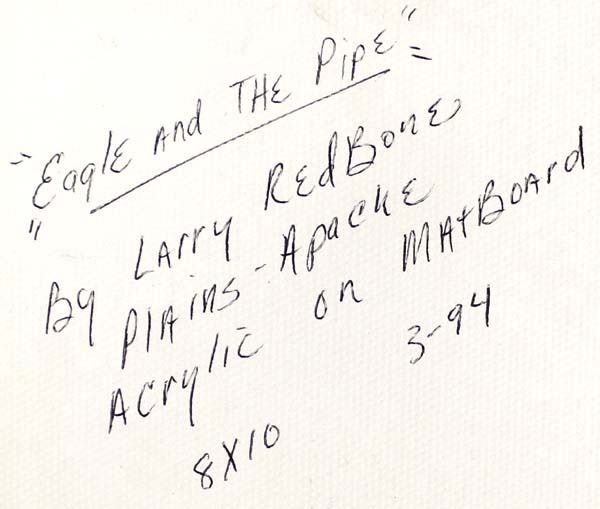 "Eagle and THE Pipe"
By Larry RedBone
Plains-Apache
Acrylic on MatBoard
8X10 3-94